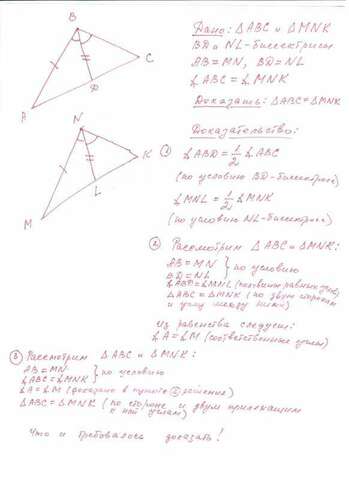 B
A
D
C
N
M
L
K
Дано: ΔABC и ΔMNK
BD и NL-биссектрисы
AB=MN, BD=NL
∠ABC=∠MNK
Доказать: ΔABC=ΔMNK
Доказательство:
① ∠ABD=1/2 ∠ABC
(по условию BD-биссектриса)
∠MNL=1/2 ∠MNK
(по условию NL-биссектриса)
② Рассмотрим ΔABC и ΔMNK:
AB=MN
BD=NL } по условию
∠ABD=∠MNL (половины равных углов)
ΔABC=ΔMNK (по двум сторонам
и углу между ними)
Из равенства следует:
∠A=∠M (соответственные углы)
③ Рассмотрим ΔABC и ΔMNK:
AB=MN
∠ABC=∠MNK } по условию
∠A=∠M (доказано в пункте ② решения)
ΔABC=ΔMNK (по стороне и двум прилежащим
к ней углам)
Что и требовалось доказать!